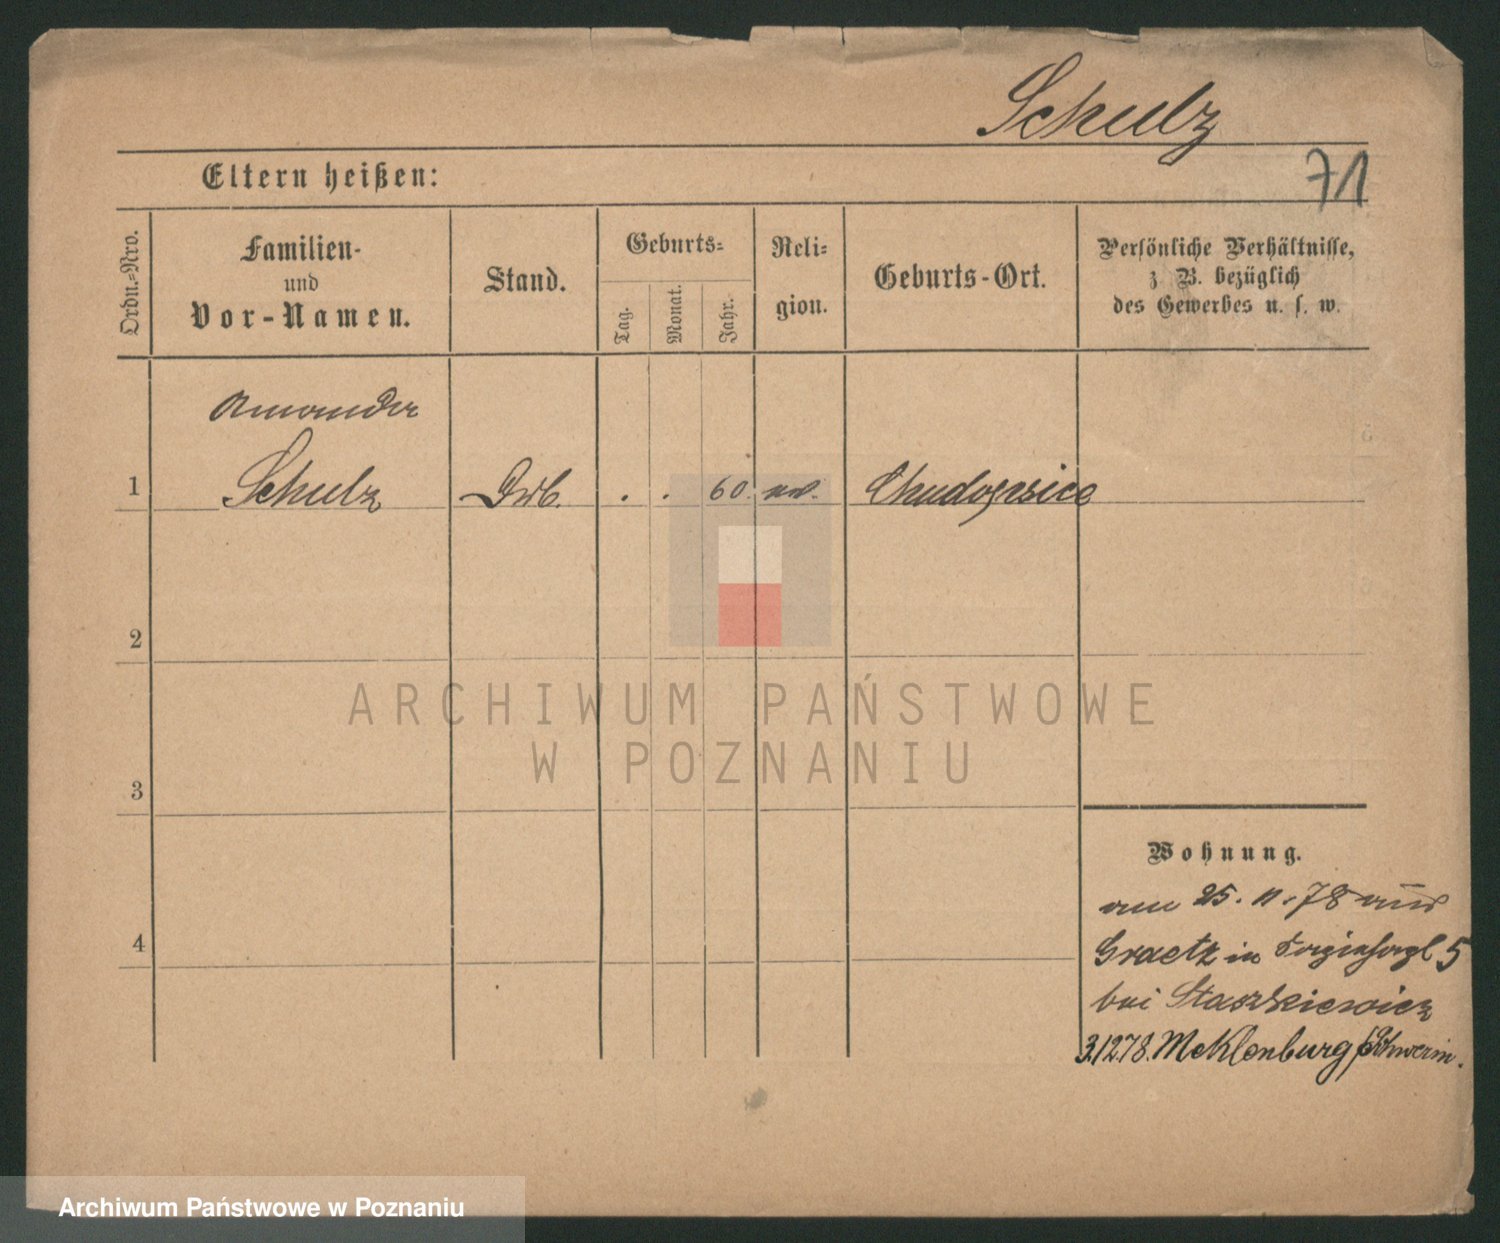 Schulz
71
Eltern heißen:
Ordn.-Nro.
Familien-
und
Vor-Namen.
Stand.
Geburts-
Tag.
Monat.
Jahr.
Reli-
gion.
Geburts-Ort.
Persönliche Verhältnisse,
z. B. bezüglich
des Gewerbes u. s. w.
1
Schulz
. . 60.
2
ARCHIWUM PAŃSTWOWE
W POZNANIU
3
Wohnung.
am 25. 11. 78 aus
4
Graetz in 5
bei Staszkiewicz
3/12 78. Meklenburg Schwerin.
Archiwum Państwowe w Poznaniu